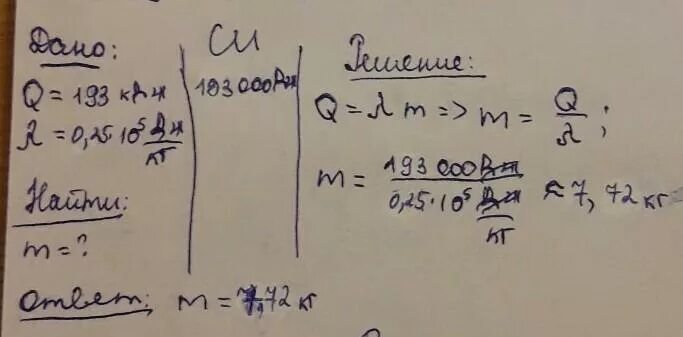 Дано:
Q = 193 кДж
λ = 0,25·10⁵ Дж/кг
Найти:
m = ?
СИ
193 000 Дж
Решение:
Q = λ m => m = Q/λ ;
m = 193 000 Дж / 0,25·10⁵ Дж/кг ≈ 7,72 кг
Ответ: m = 7,72 кг